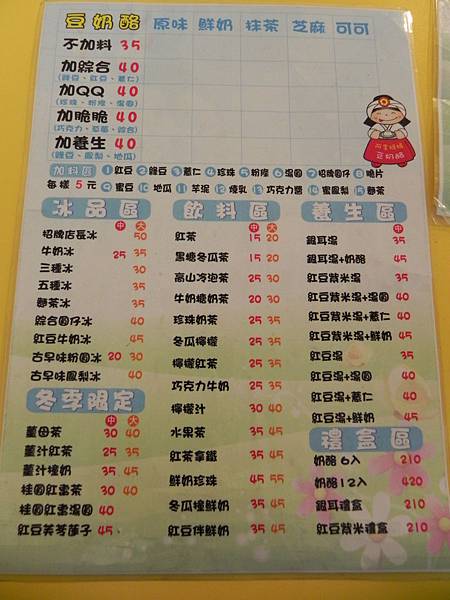 豆奶酪 原味 鮮奶 抹茶 芝麻 可可
不加料 35
加綜合 40
(綠豆、紅豆、薏仁)
加QQ 40
(珍珠、粉粿、湯圓)
加脆脆 40
(巧克力、草莓、綜合)
加養生 40
(綠豆、鳳梨、地瓜)
豆奶酪
加料區 1紅豆 2綠豆 3薏仁 4珍珠 5粉粿 6湯圓 7招牌圓仔 8脆片
每樣5元 9蜜豆 10地瓜 11芋泥 12煉乳 13巧克力醬 14蜜鳳梨 15懸茶
冰品區
中 大
招牌店長冰 50
牛奶冰 25 35
三種冰 30
五種冰 35
懸茶冰 35
綜合圓仔冰 40
紅豆牛奶冰 45
古早味粉圓冰 20 30
古早味鳳梨冰 40
冬季限定
中 大
薑母茶 30 40
薑汁紅茶 35 45
薑汁撞奶 35 45
桂圓紅棗茶 30 40
桂圓紅棗湯圓 40
紅豆芙蓉蓮子 45
飲料區
中 大
紅茶 15 20
黑糖冬瓜茶 15 20
高山冷泡茶 25 30
牛奶糖奶茶 20 30
珍珠奶茶 25 35
冬瓜檸檬 25 35
檸檬紅茶 25 35
巧克力牛奶 25 35
檸檬汁 30 40
水果茶 35 45
紅茶拿鐵 35 45
鮮奶珍珠 45 55
冬瓜撞鮮奶 35 45
紅豆伴鮮奶 35 45
養生區
中
銀耳湯 35
銀耳湯+奶酪 45
紅豆紫米湯 35
紅豆紫米湯+湯圓 40
紅豆紫米湯+薏仁 40
紅豆紫米湯+鮮奶 45
紅豆湯 35
紅豆湯+湯圓 40
紅豆湯+薏仁 40
紅豆湯+鮮奶 45
禮盒區
奶酪6入 210
奶酪12入 420
銀耳禮盒 210
紅豆紫米禮盒 210